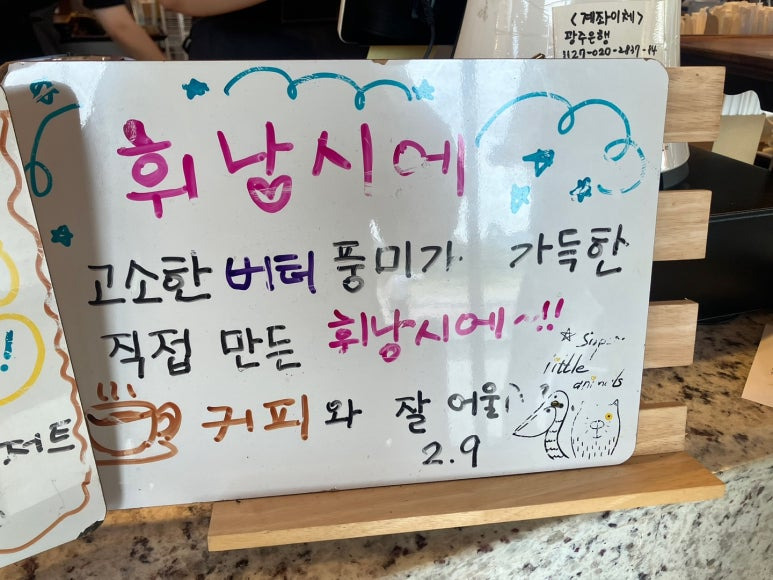 <계좌이체>
광주은행
1127-020-2837-14
휘낭시에
고소한 버터 풍미가 가득한
직접 만든 휘낭시에~!!
커피와 잘 어울
2.9
little
animals
저트